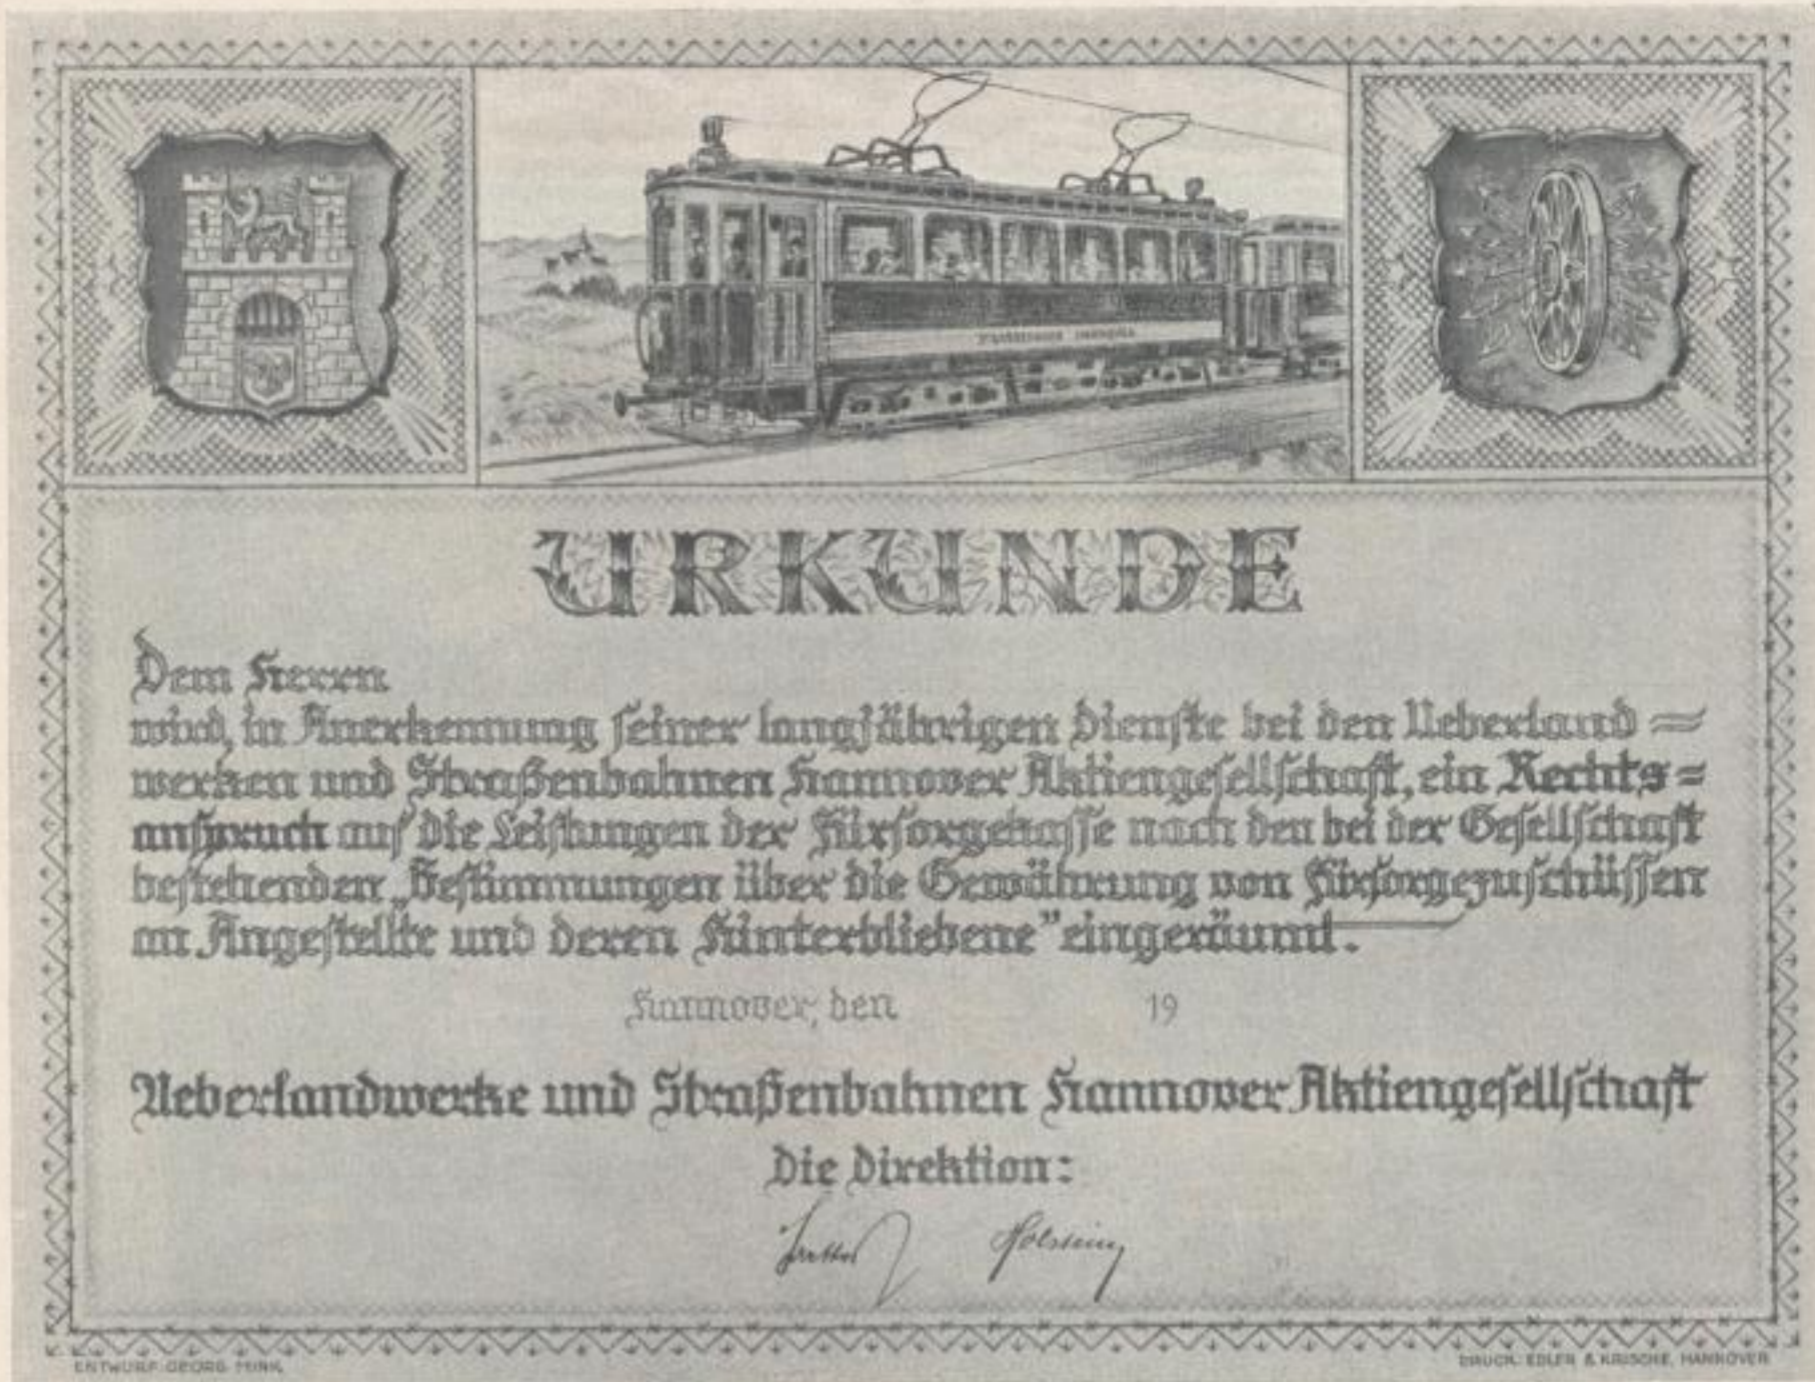 STRASSENBAHN HANNOVER
URKUNDE
Dem Herrn
wird, in Anerkennung seiner langjährigen Dienste bei den Ueberland=
werken und Straßenbahnen Hannover Aktiengesellschaft, ein Rechts=
anspruch auf die Leistungen der Fürsorgekasse nach den bei der Gesellschaft
bestehenden „Bestimmungen über die Gewährung von Fürsorgezuschüssen
an Angestellte und deren Hinterbliebene" eingeräumt.
Hannover, den 19
Ueberlandwerke und Straßenbahnen Hannover Aktiengesellschaft
Die Direktion:
Holstein
ENTWURF: GEORG
DRUCK: EDLER & KRISCHE, HANNOVER